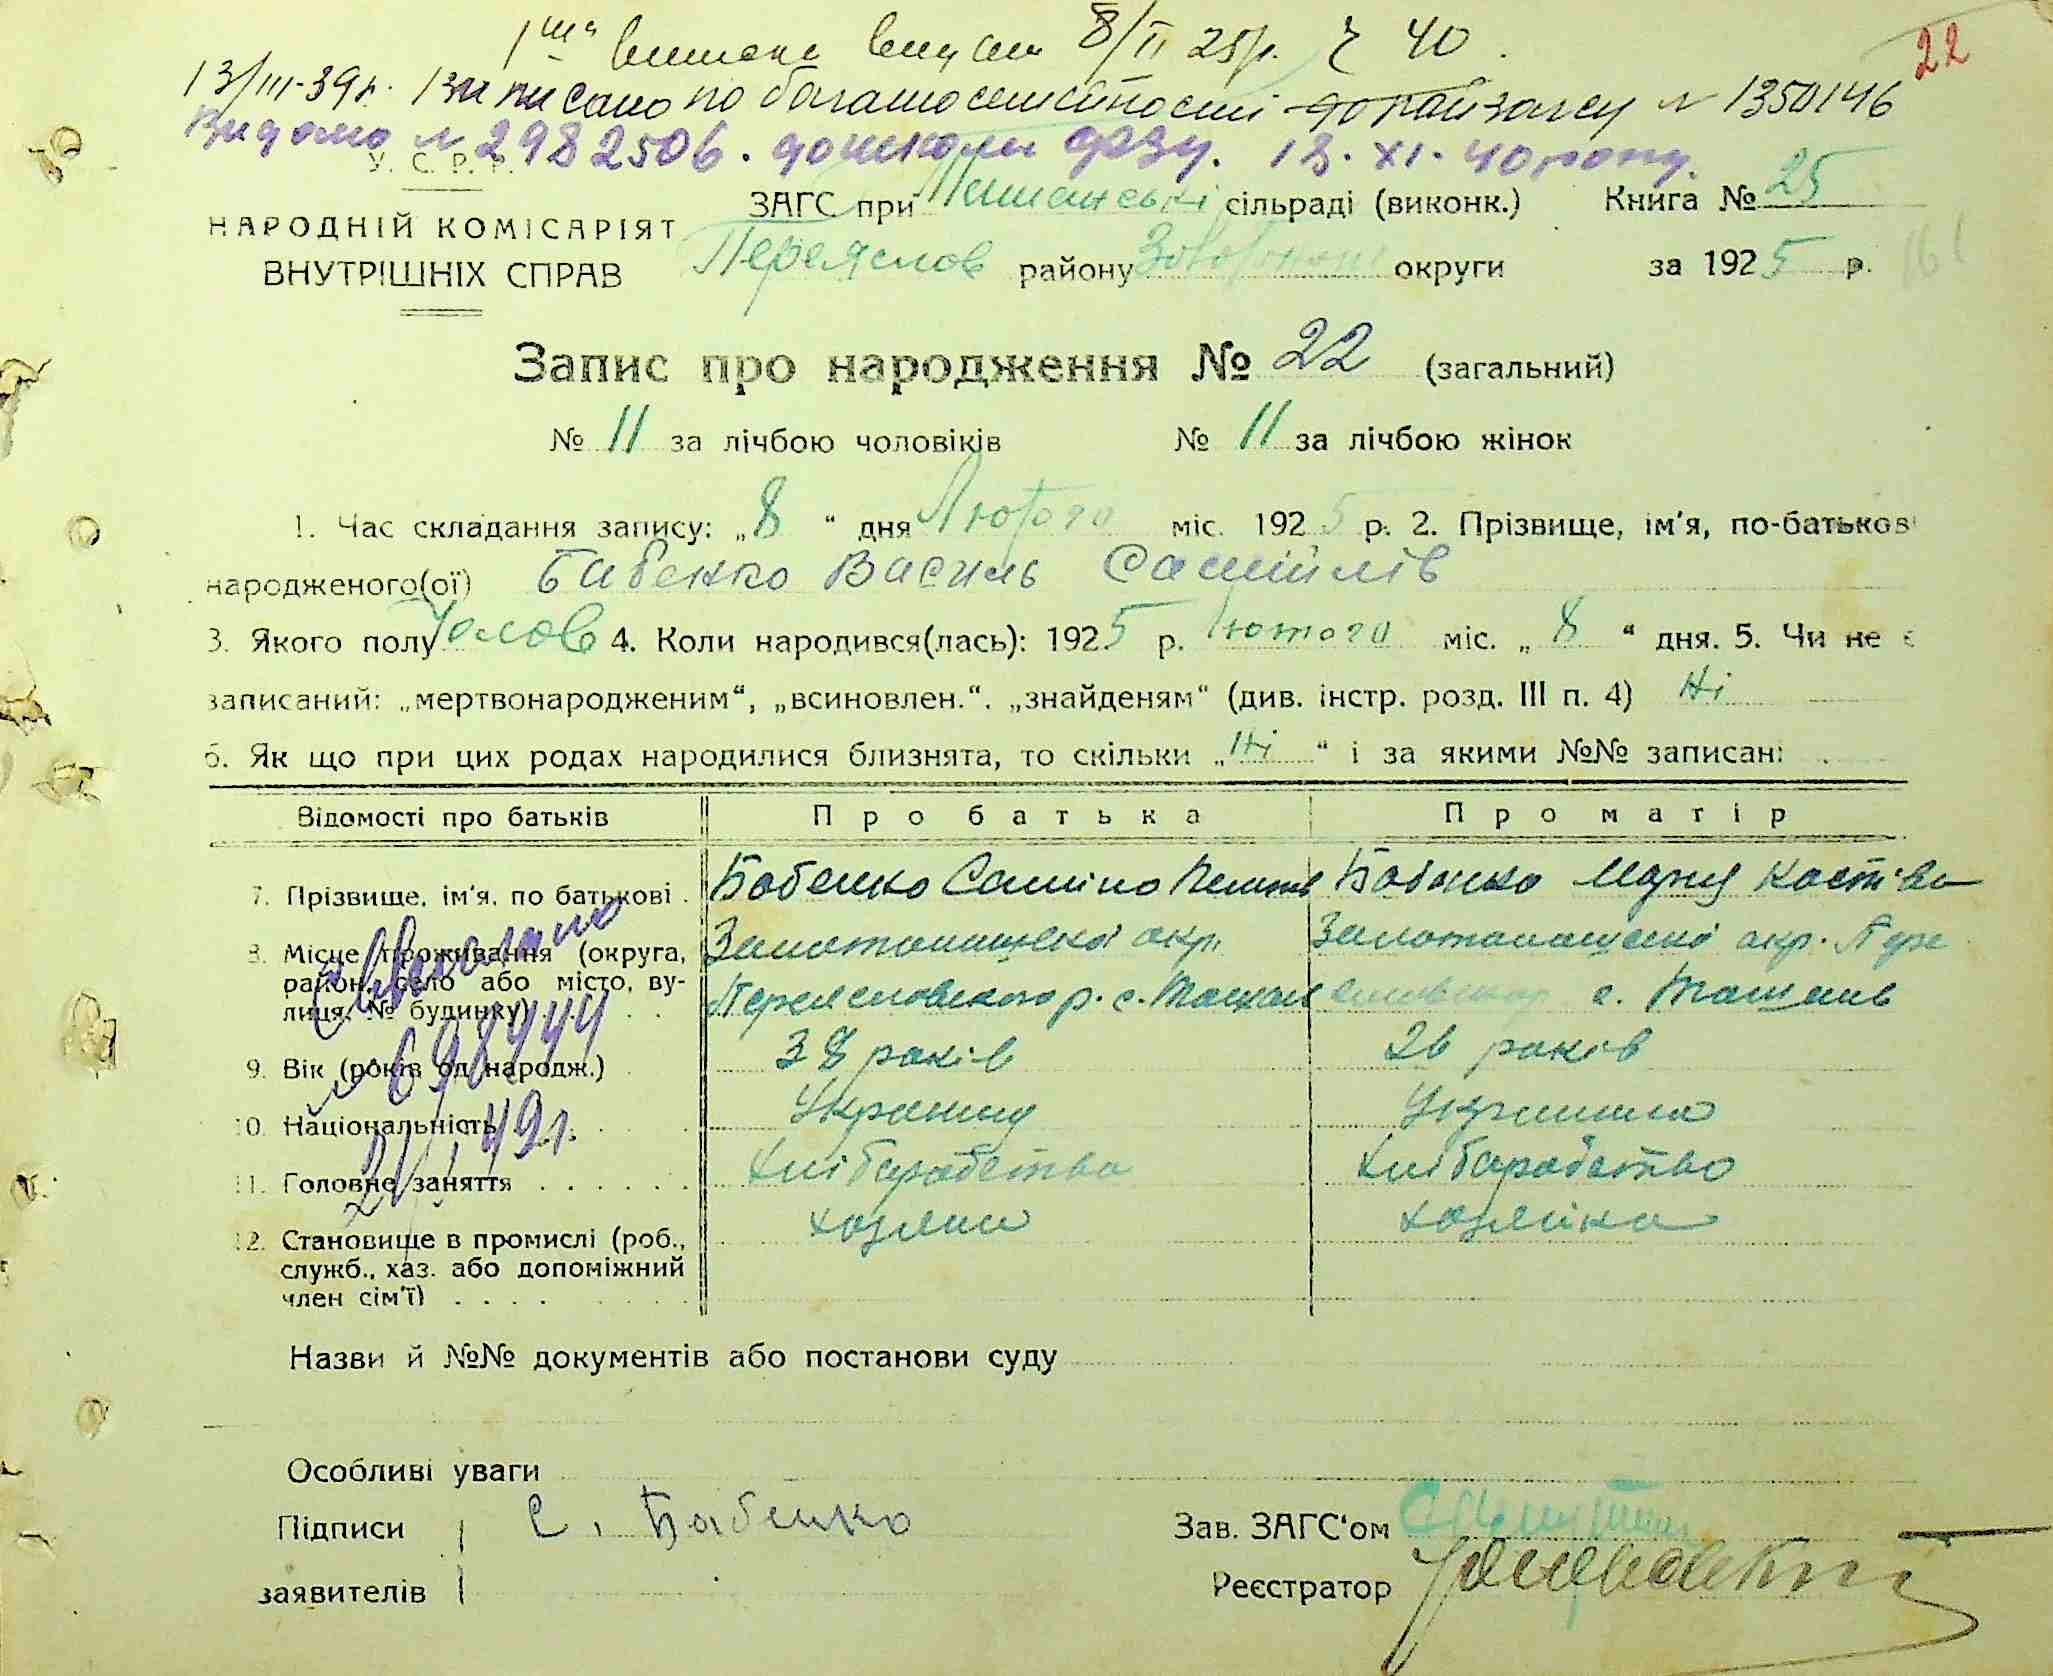 22
8/II 25р. 40
13/III-39р. по багатосемейності до райзагсу № 1350146
Видано № 2982506. до школи ФЗУ. 13. XI. 40 року.
У. С. Р. Р.
НАРОДНІЙ КОМІСАРІЯТ
ВНУТРІШНІХ СПРАВ
ЗАГС при сільраді (виконк.) Книга № 25
Переяслов району округи за 1925 р.
Запис про народження № 22 (загальний)
№ 11 за лічбою чоловіків № 11 за лічбою жінок
1. Час складання запису: „8“ дня Лютого міс. 1925 р. 2. Прізвище, ім'я, по-батькові
народженого(ої) Бабенко Василь Самійлів
3. Якого полу Чолов 4. Коли народився(лась): 1925 р. Лютого міс. „8“ дня. 5. Чи не є
записаний: „мертвонародженим“, „всиновлен.“. „знайденям“ (див. інстр. розд. III п. 4) Ні
6. Як що при цих родах народилися близнята, то скільки „Ні“ і за якими №№ записані
Відомості про батьків Про батька Про матір
7. Прізвище, ім'я, по батькові Бабенко Самійло Бабенко Мария Костівна
8. Місце проживання (округа, район, село або місто, вулиця, № будинку) Золотоношська окр. Переяславського р. с. Ташань Золотоношська окр. с. Ташань
№ 698444
9. Вік (років од народж.) 38 років 26 років
10. Національність Українец Українка
49г.
11. Головне заняття хлібаробство хлібаробство
12. Становище в промислі (роб., служб., хаз. або допоміжний член сім'ї) хозяин хозяйка
Назви й №№ документів або постанови суду
Особливі уваги
Підписи С. Бабенко Зав. ЗАГС'ом
заявителів Реєстратор